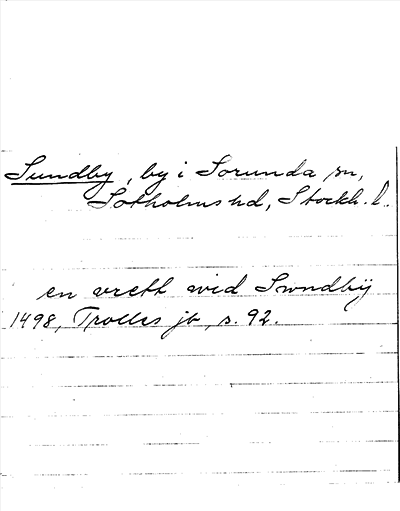 Sundby, by i Sorunda sn,
Sotholms hd, Stockh. l.
en vrett wid Swndby
1498, Trolles jb, s. 92.